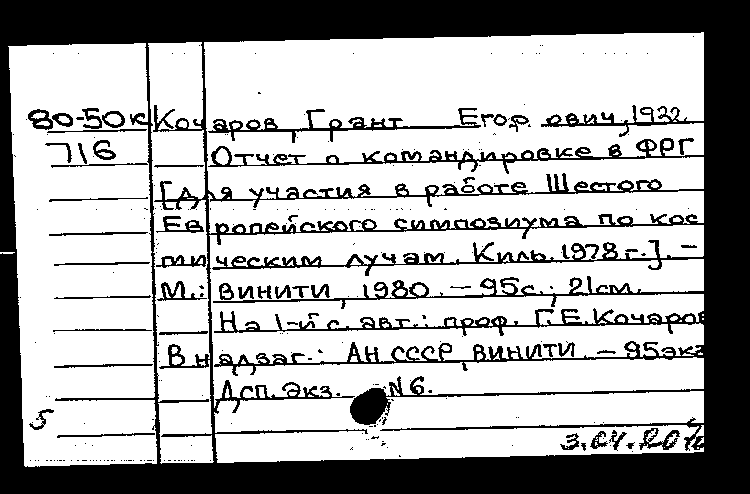 80-50к Кочаров, Грант Егорович, 1932
716 Отчет о командировке в ФРГ
[для участия в работе Шестого
Европейского симпозиума по кос
мическим лучам. Киль. 1978 г.]. -
М.: ВИНИТИ, 1980. - 95с.; 21см.
На 1-й с. авт.: проф. Г.Е.Кочаров
В надзаг.: АН СССР, ВИНИТИ. - 95экз
Дсп. Экз. N6.
5
3.04.